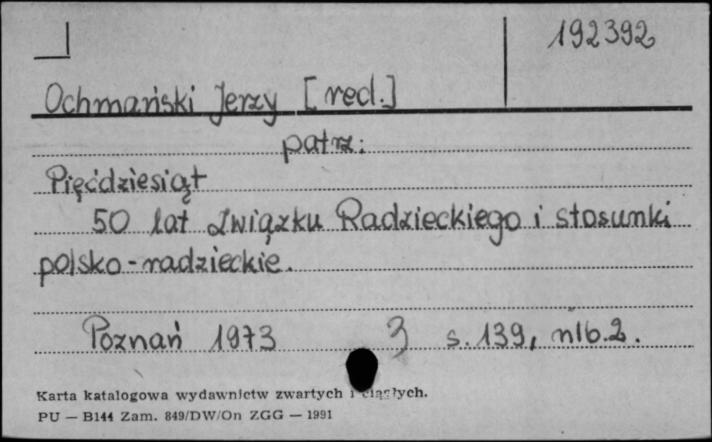 192392
Ochmański Jerzy [red.]
patrz:
Pięćdziesiąt
50 lat Związku Radzieckiego i stosunki
polsko-radzieckie.
Poznań 1973 3 s. 139, nlb. 2.
Karta katalogowa wydawnictw zwartych i ciągłych.
PU — B144 Zam. 849/DW/On ZGG — 1991